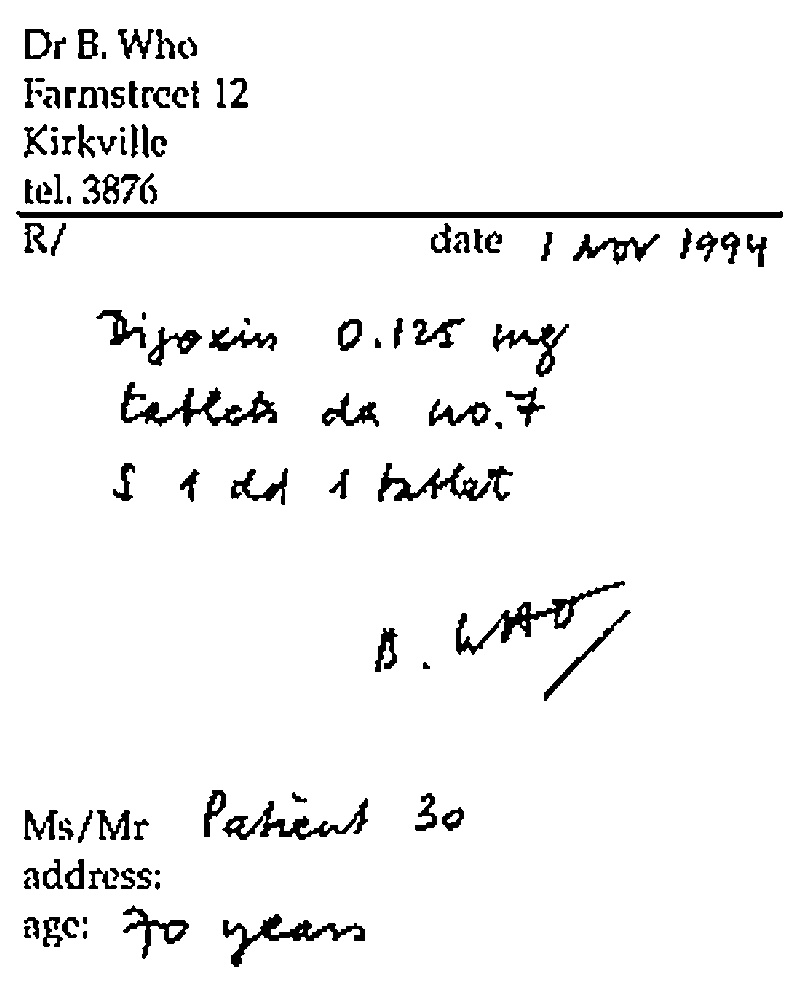 Dr B. Who
Farmstreet 12
Kirkville
tel. 3876
R/ date 1 nov 1994
Digoxin 0.125 mg
tablets da no.7
S 1 dd 1 tablet
B. WHO
Ms/Mr Patient 30
address:
age: 70 years